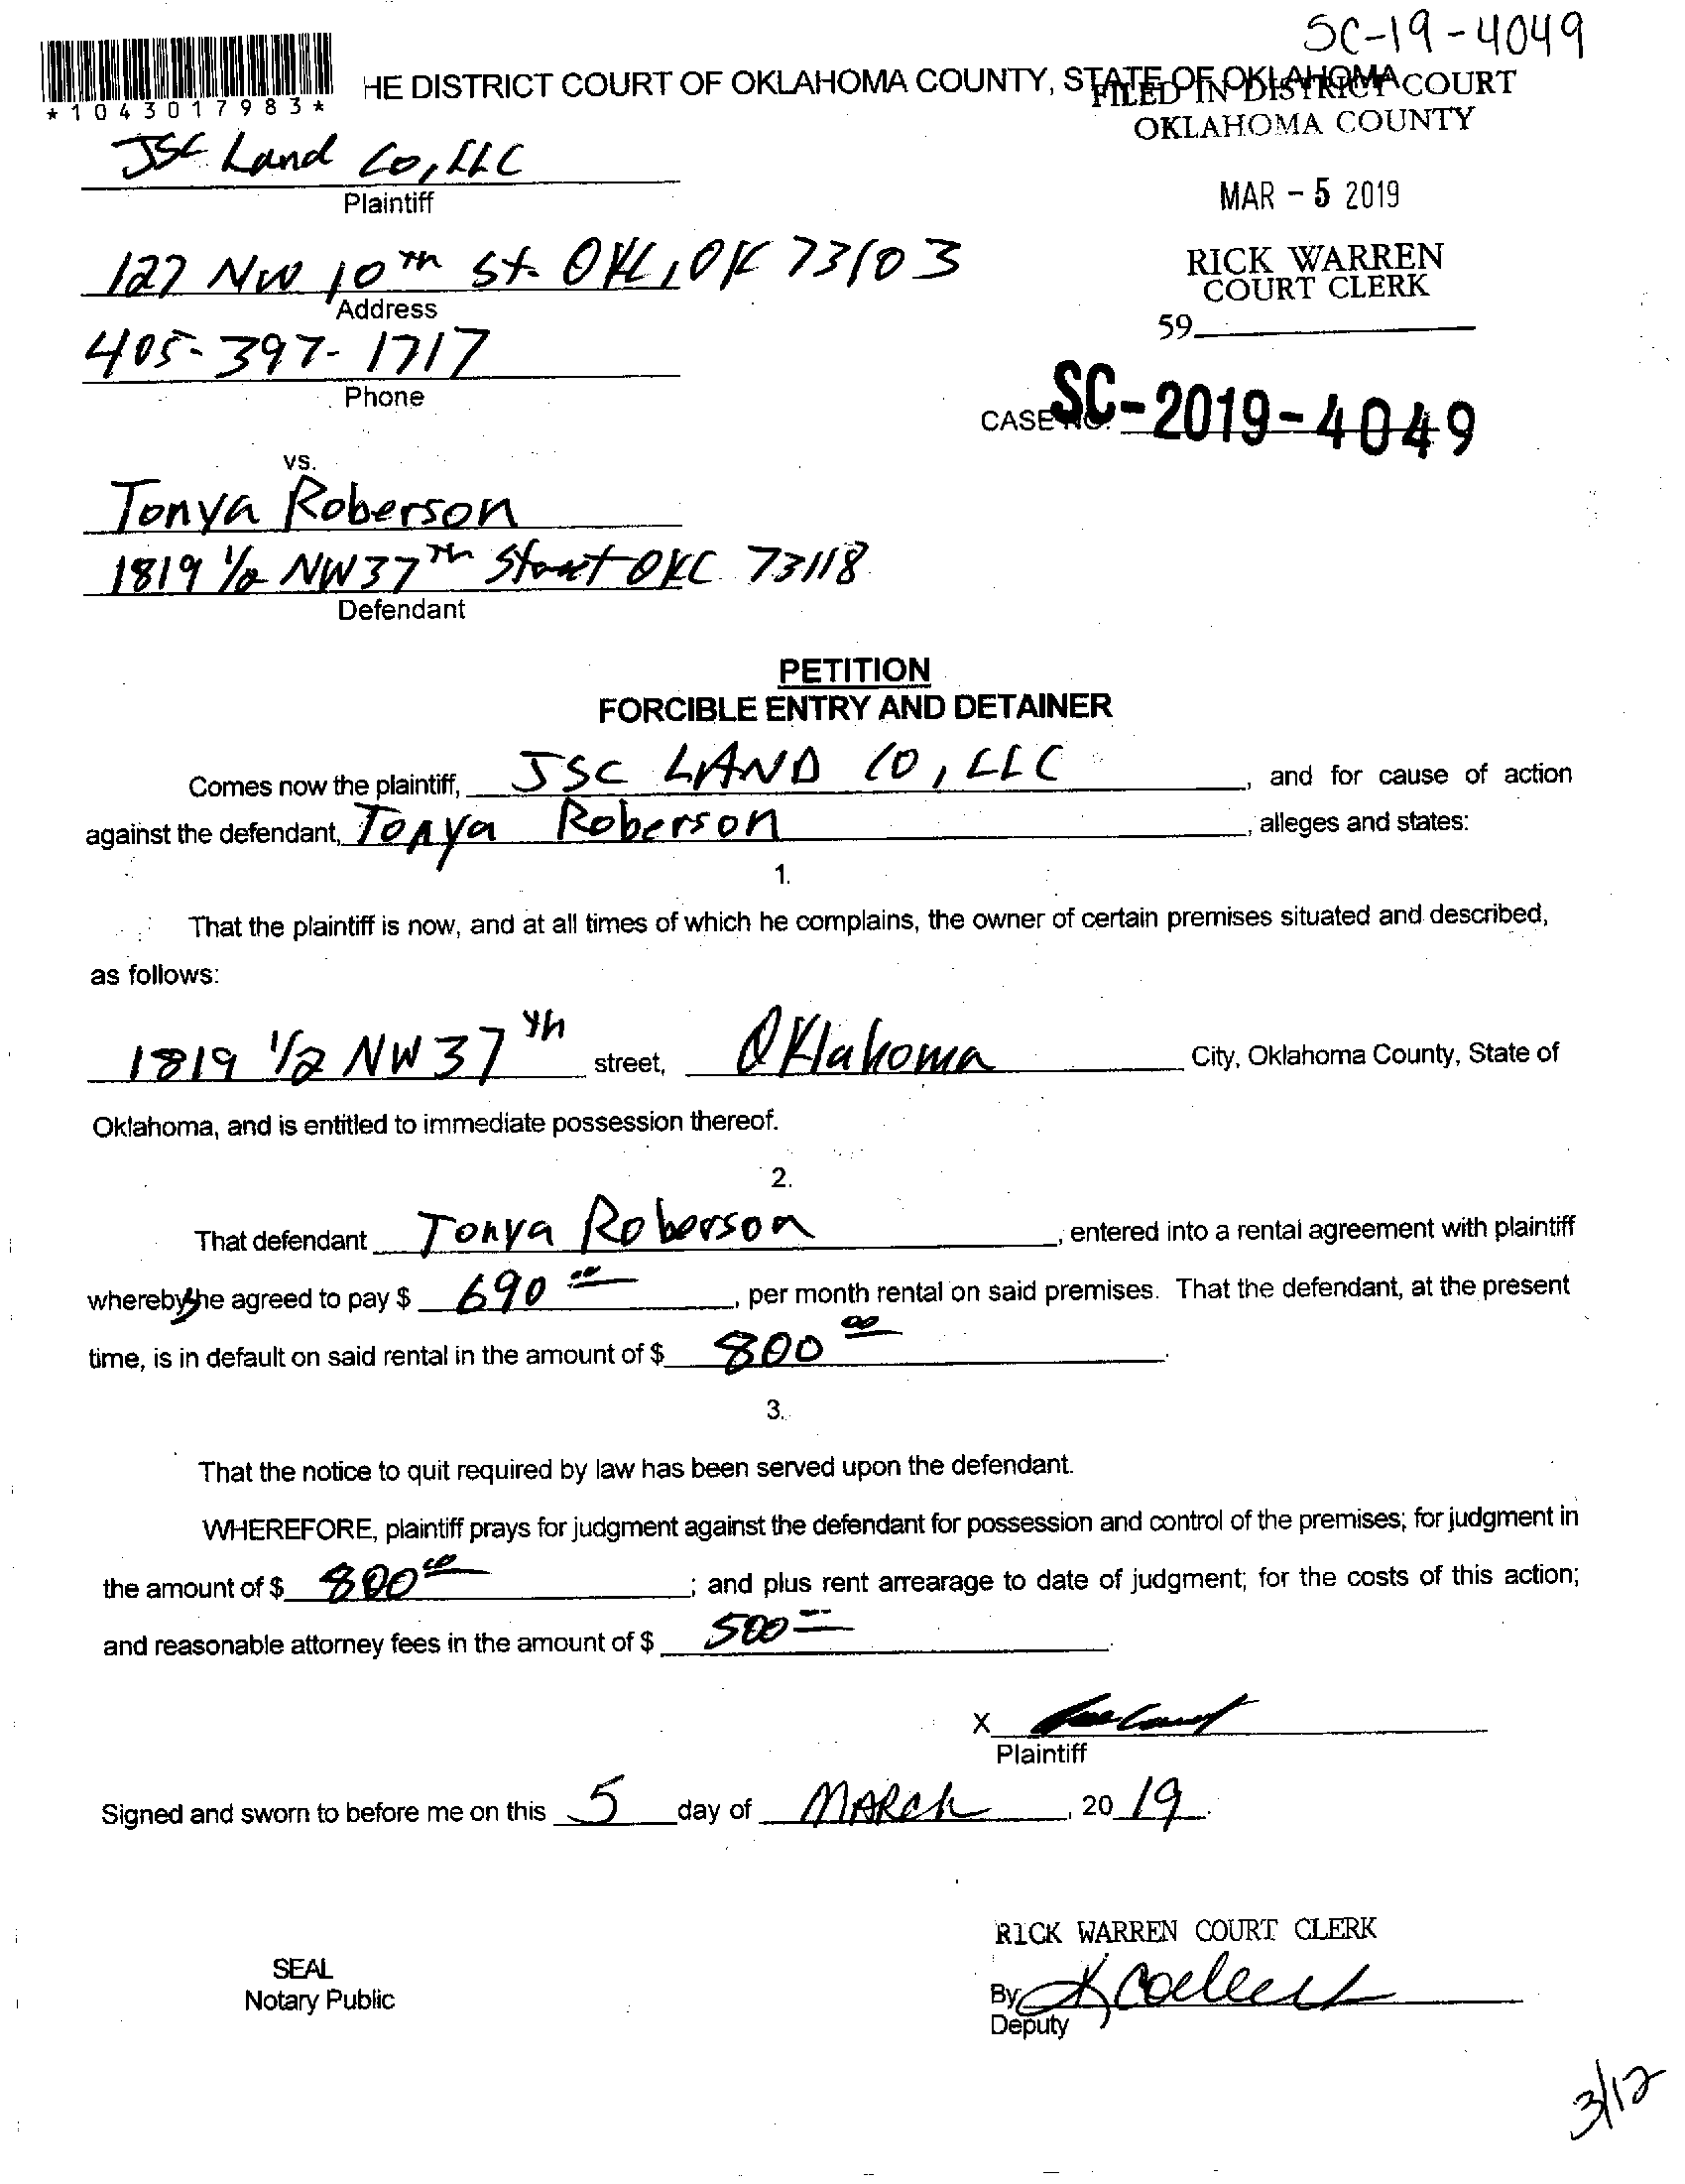 SC-19-4049
*1043017983*
HE DISTRICT COURT OF OKLAHOMA COUNTY, STATE OF OKLAHOMA
FILED IN DISTRICT COURT
OKLAHOMA COUNTY
JSC Land Co, LLC
Plaintiff
MAR - 5 2019
127 NW 10TH St. OKC, OK 73103
Address
RICK WARREN
COURT CLERK
59
405-397-1717
Phone
CASE NO. SC-2019-4049
vs.
Tonya Roberson
1819 1/2 NW 37TH Street OKC 73118
Defendant
PETITION
FORCIBLE ENTRY AND DETAINER
Comes now the plaintiff, JSC LAND CO, LLC, and for cause of action
against the defendant, Tonya Roberson, alleges and states:
1.
That the plaintiff is now, and at all times of which he complains, the owner of certain premises situated and described,
as follows:
1819 1/2 NW 37th street, Oklahoma City, Oklahoma County, State of
Oklahoma, and is entitled to immediate possession thereof.
2.
That defendant Tonya Roberson, entered into a rental agreement with plaintiff
whereby she agreed to pay $ 690 00, per month rental on said premises. That the defendant, at the present
time, is in default on said rental in the amount of $ 800 00.
3.
That the notice to quit required by law has been served upon the defendant.
WHEREFORE, plaintiff prays for judgment against the defendant for possession and control of the premises; for judgment in
the amount of $ 800 00; and plus rent arrearage to date of judgment; for the costs of this action;
and reasonable attorney fees in the amount of $ 500.
X
Plaintiff
Signed and sworn to before me on this 5 day of MARch, 20 19.
RICK WARREN COURT CLERK
SEAL
Notary Public
By
Deputy
3/12